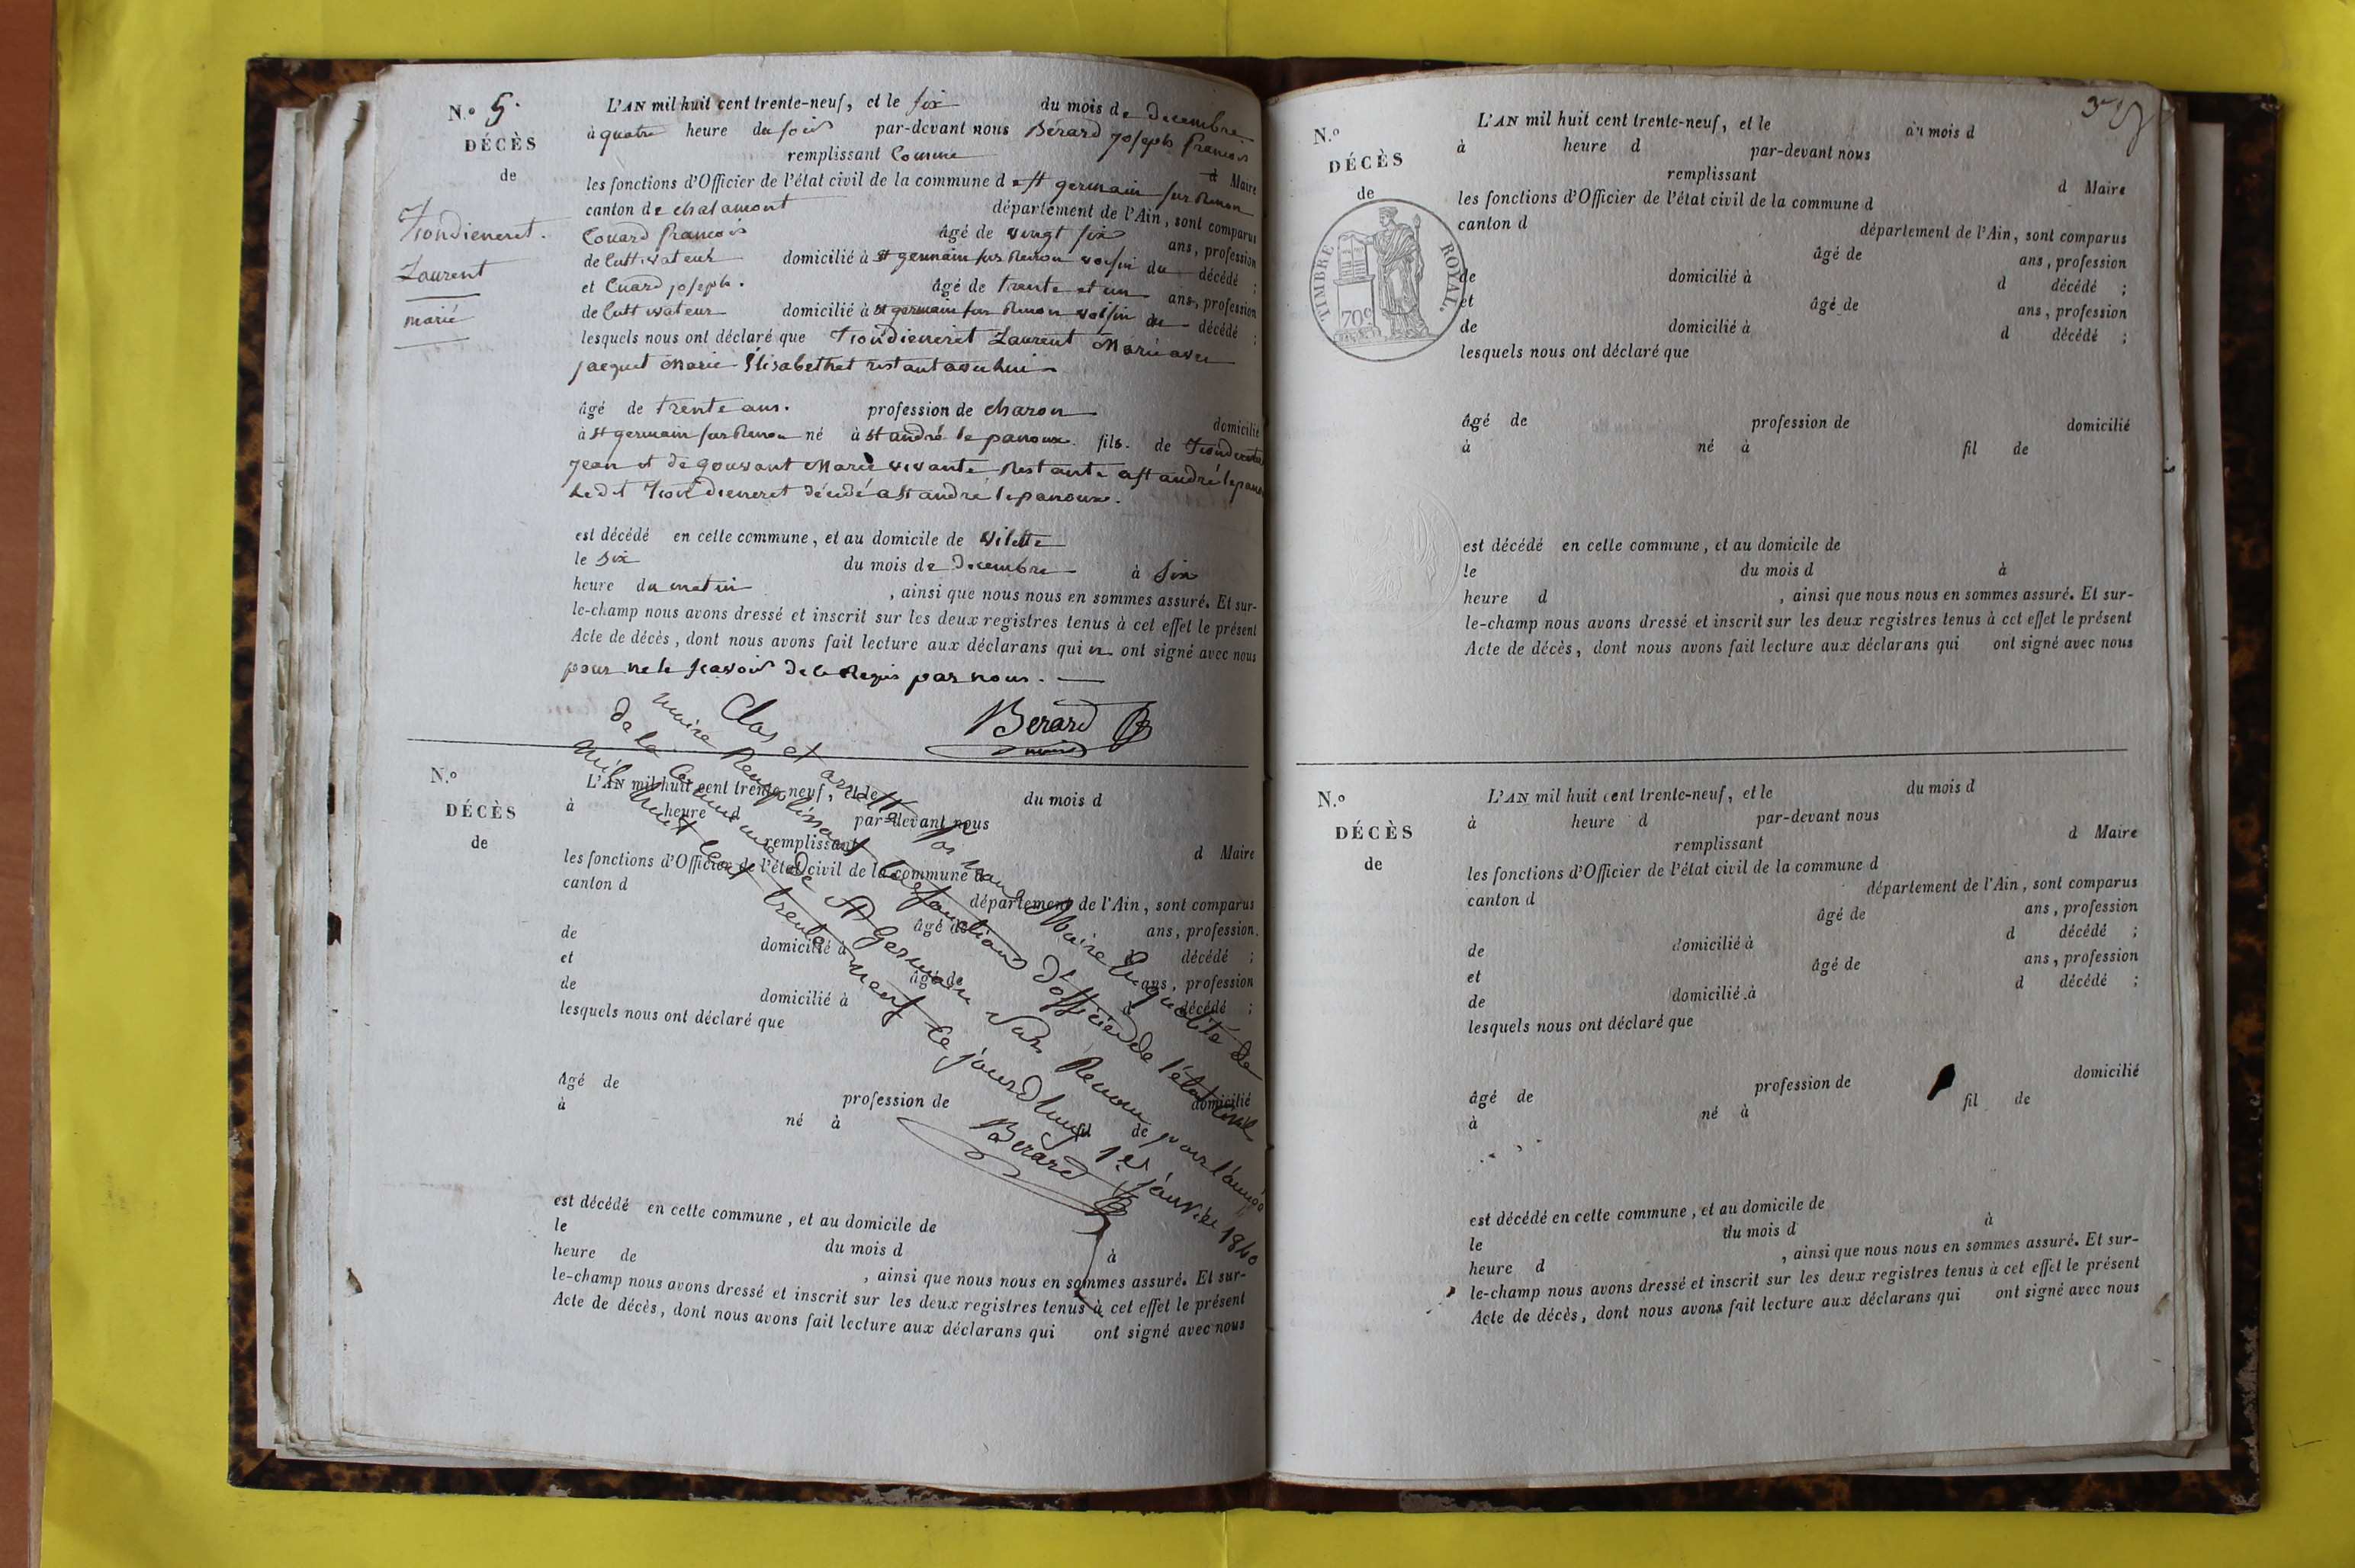 N.º 5.
DÉCÈS
de
Laurent
marié
L'AN mil huit cent trente-neuf, et le six du mois de decembre
à quatre heure du soir par-devant nous Bérard joseph francois
remplissant comme d Maire
les fonctions d'Officier de l'état civil de la commune d e st germain sur Renon
canton de chalamont département de l'Ain, sont comparus
Couard francois âgé de vingt six ans, profession
de cuttivateur domicilié à st germain sur Renon voisin du décédé ;
et Cuard joseph. âgé de trente et un ans, profession
de cuttivateur domicilié à st germain sur Renon voisin du décédé ;
lesquels nous ont déclaré que Laurent Marié avec
jacquet Marie Elisabeth et restant avec lui
âgé de trente ans. profession de charon domicilié
à st germain sur Renon né à st andré le panoux. fils. de
jean et de gouvant Marie vivante Restante a st andré le panoux
le dit décédé a st andré le panoux.
est décédé en cette commune, et au domicile de vilette
le six du mois de decembre à six
heure du matin , ainsi que nous nous en sommes assuré. Et sur-
le-champ nous avons dressé et inscrit sur les deux registres tenus à cet effet le présent
Acte de décès, dont nous avons fait lecture aux déclarans qui n ont signé avec nous
pour ne le scavoir de ce Requis par nous.
Berard
maire
Clos et arretté par nous Maire En qualité de
maire Remplissant les fonctions d'officier de l'état civil
de la commune de St Germain sur Renon pour l'année
mil huit cent trente neuf ce jourd'huy 1er janvier 1840
Berard
N.º
DÉCÈS
de
L'AN mil huit cent trente-neuf, et le du mois d
à heure d par-devant nous
remplissant d Maire
les fonctions d'Officier de l'état civil de la commune d
canton d département de l'Ain, sont comparus
âgé de ans, profession
de domicilié à d décédé ;
et âgé de ans, profession
de domicilié à d décédé ;
lesquels nous ont déclaré que
âgé de profession de domicilié
à né à fil de
est décédé en cette commune, et au domicile de
le du mois d à
heure de , ainsi que nous nous en sommes assuré. Et sur-
le-champ nous avons dressé et inscrit sur les deux registres tenus à cet effet le présent
Acte de décès, dont nous avons fait lecture aux déclarans qui ont signé avec nous
N.º
DÉCÈS
de
TIMBRE ROYAL.
70c
L'AN mil huit cent trente-neuf, et le du mois d
à heure d par-devant nous
remplissant d Maire
les fonctions d'Officier de l'état civil de la commune d
canton d département de l'Ain, sont comparus
âgé de ans, profession
de domicilié à d décédé ;
et âgé de ans, profession
de domicilié à d décédé ;
lesquels nous ont déclaré que
âgé de profession de domicilié
à né à fil de
est décédé en cette commune, et au domicile de
le du mois d à
heure d , ainsi que nous nous en sommes assuré. Et sur-
le-champ nous avons dressé et inscrit sur les deux registres tenus à cet effet le présent
Acte de décès, dont nous avons fait lecture aux déclarans qui ont signé avec nous
N.º
DÉCÈS
de
L'AN mil huit cent trente-neuf, et le du mois d
à heure d par-devant nous
remplissant d Maire
les fonctions d'Officier de l'état civil de la commune d
canton d département de l'Ain, sont comparus
âgé de ans, profession
de domicilié à d décédé ;
et âgé de ans, profession
de domicilié à d décédé ;
lesquels nous ont déclaré que
âgé de profession de domicilié
à né à fil de
est décédé en cette commune, et au domicile de
le du mois d à
heure d , ainsi que nous nous en sommes assuré. Et sur-
le-champ nous avons dressé et inscrit sur les deux registres tenus à cet effet le présent
Acte de décès, dont nous avons fait lecture aux déclarans qui ont signé avec nous